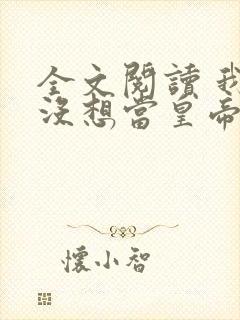 全文閱讀 我
沒想當皇帝
懷小智